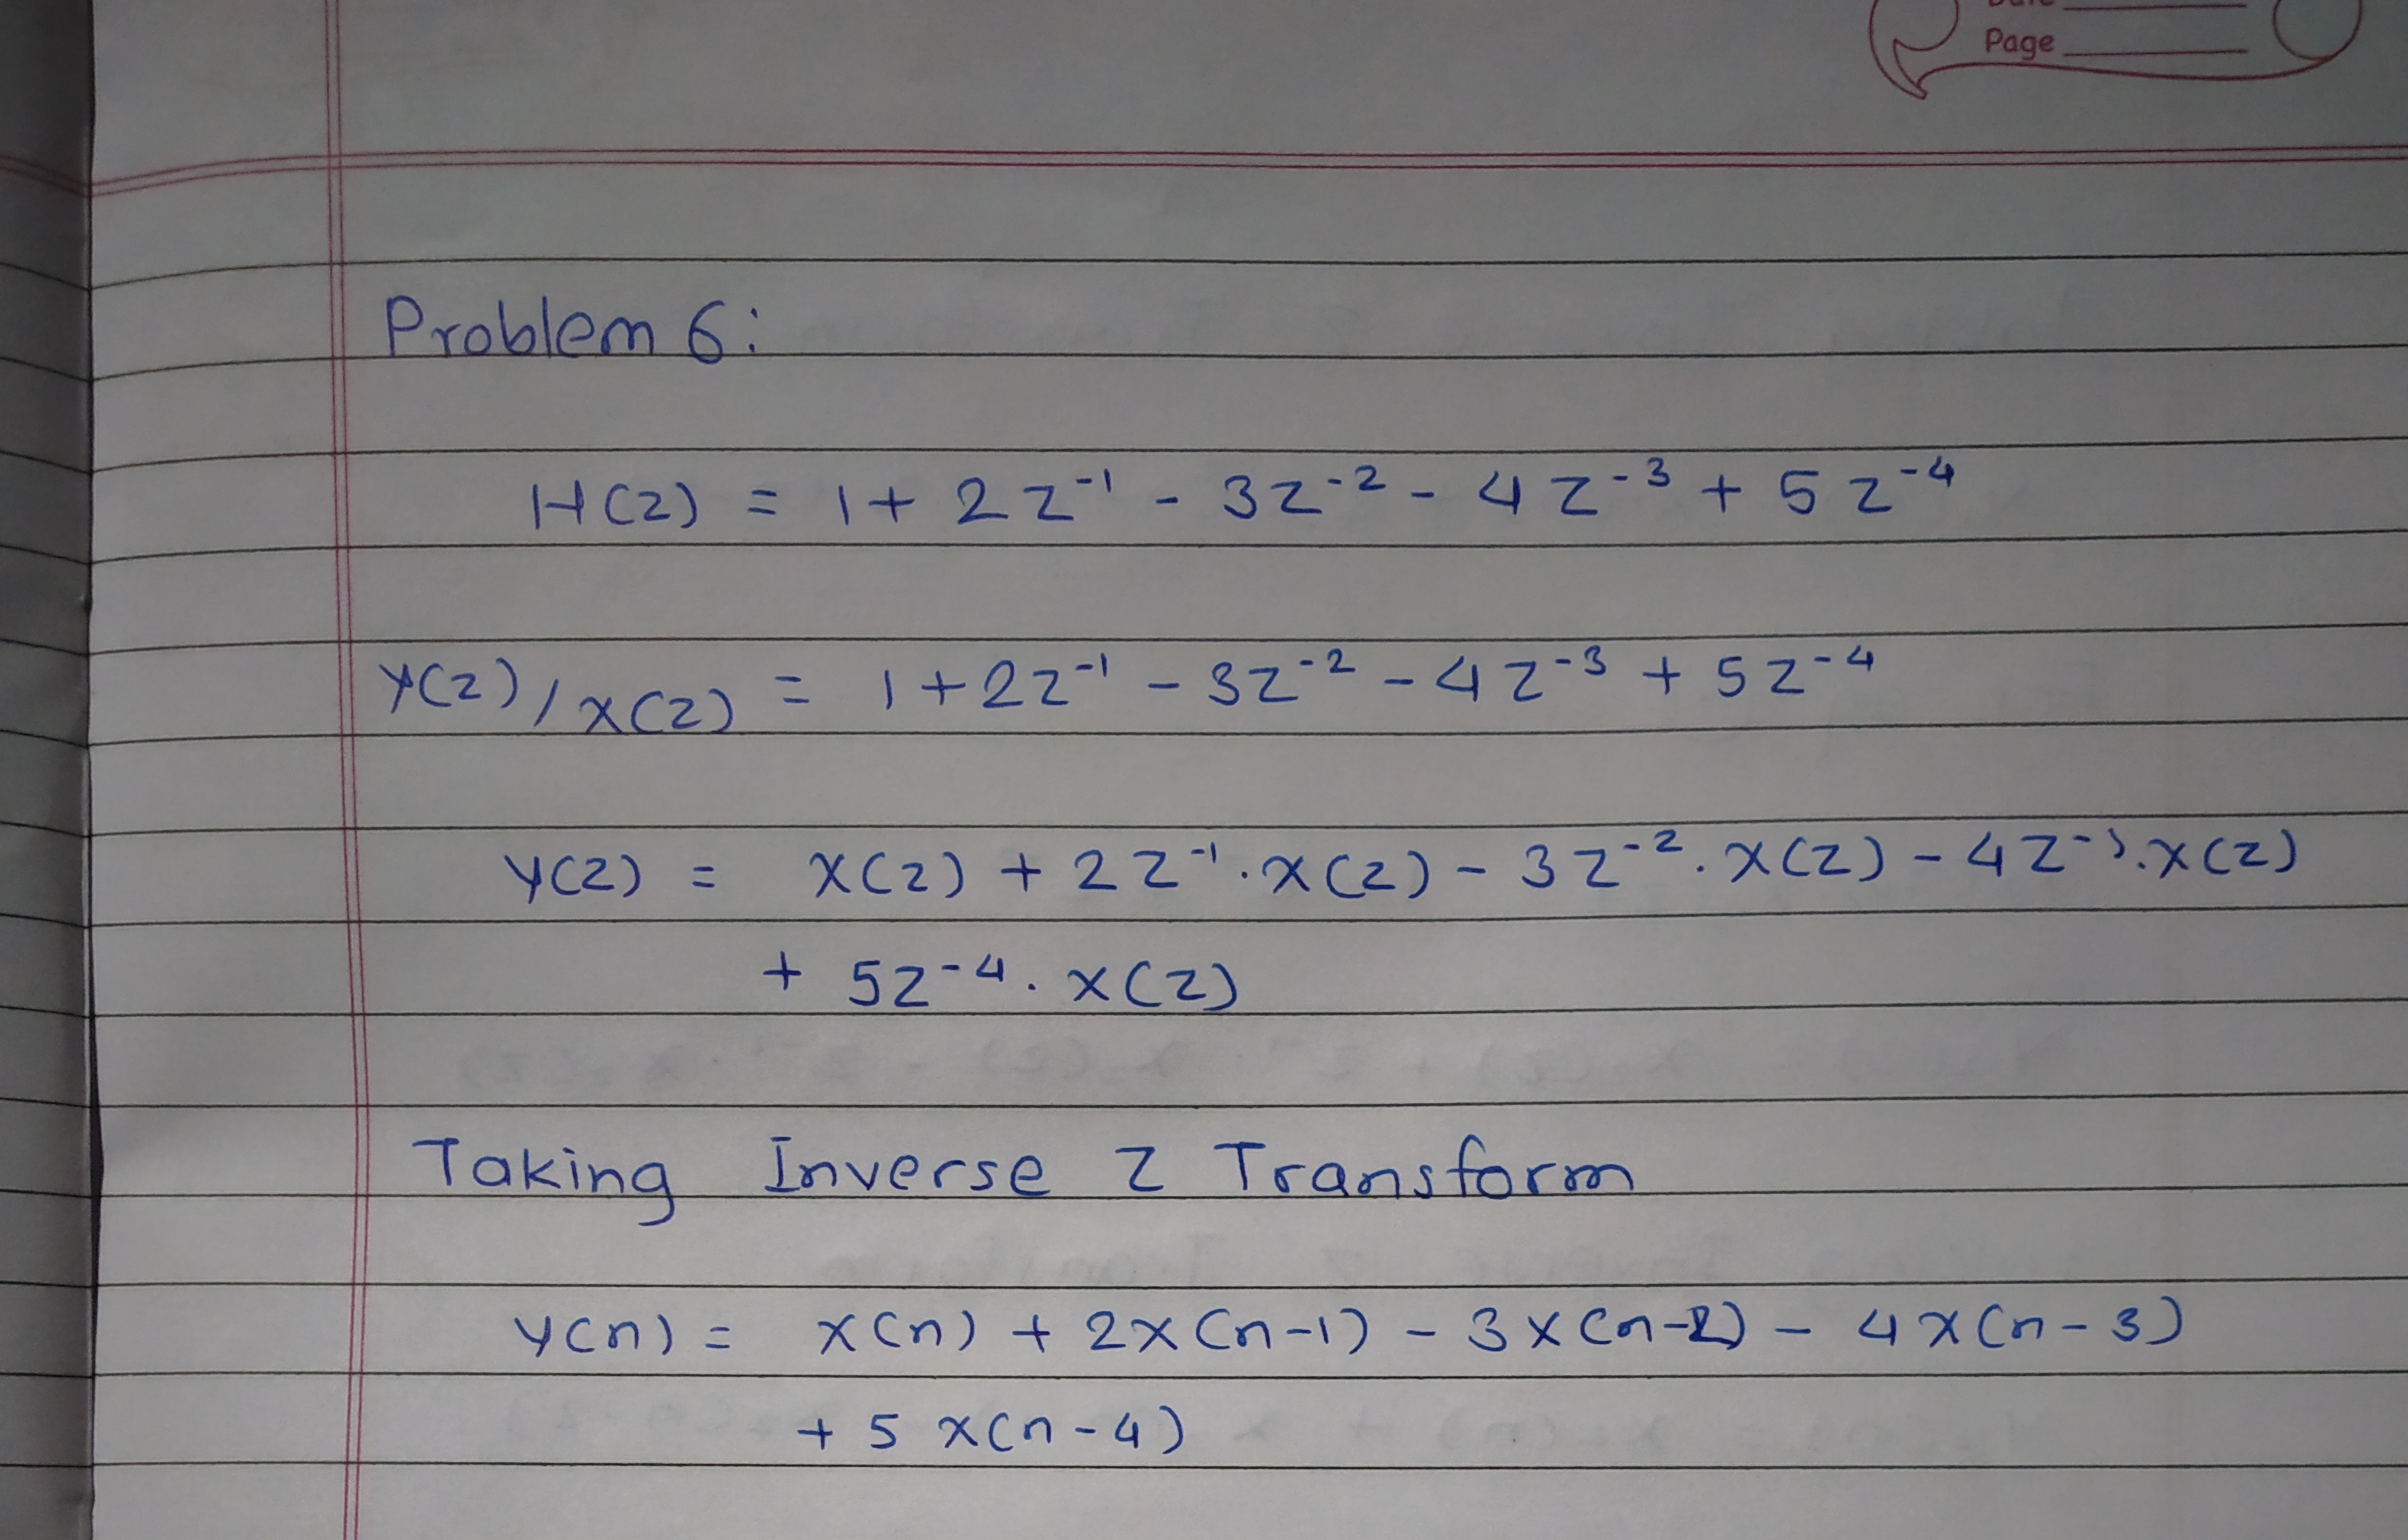 Date
Page
Problem 6:
H(z) = 1 + 2z⁻¹ - 3z⁻² - 4z⁻³ + 5z⁻⁴
Y(z)/X(z) = 1 + 2z⁻¹ - 3z⁻² - 4z⁻³ + 5z⁻⁴
Y(z) = X(z) + 2z⁻¹.X(z) - 3z⁻².X(z) - 4z⁻³.X(z)
+ 5z⁻⁴.X(z)
Taking Inverse Z Transform
y(n) = x(n) + 2x(n-1) - 3x(n-2) - 4x(n-3)
+ 5x(n-4)